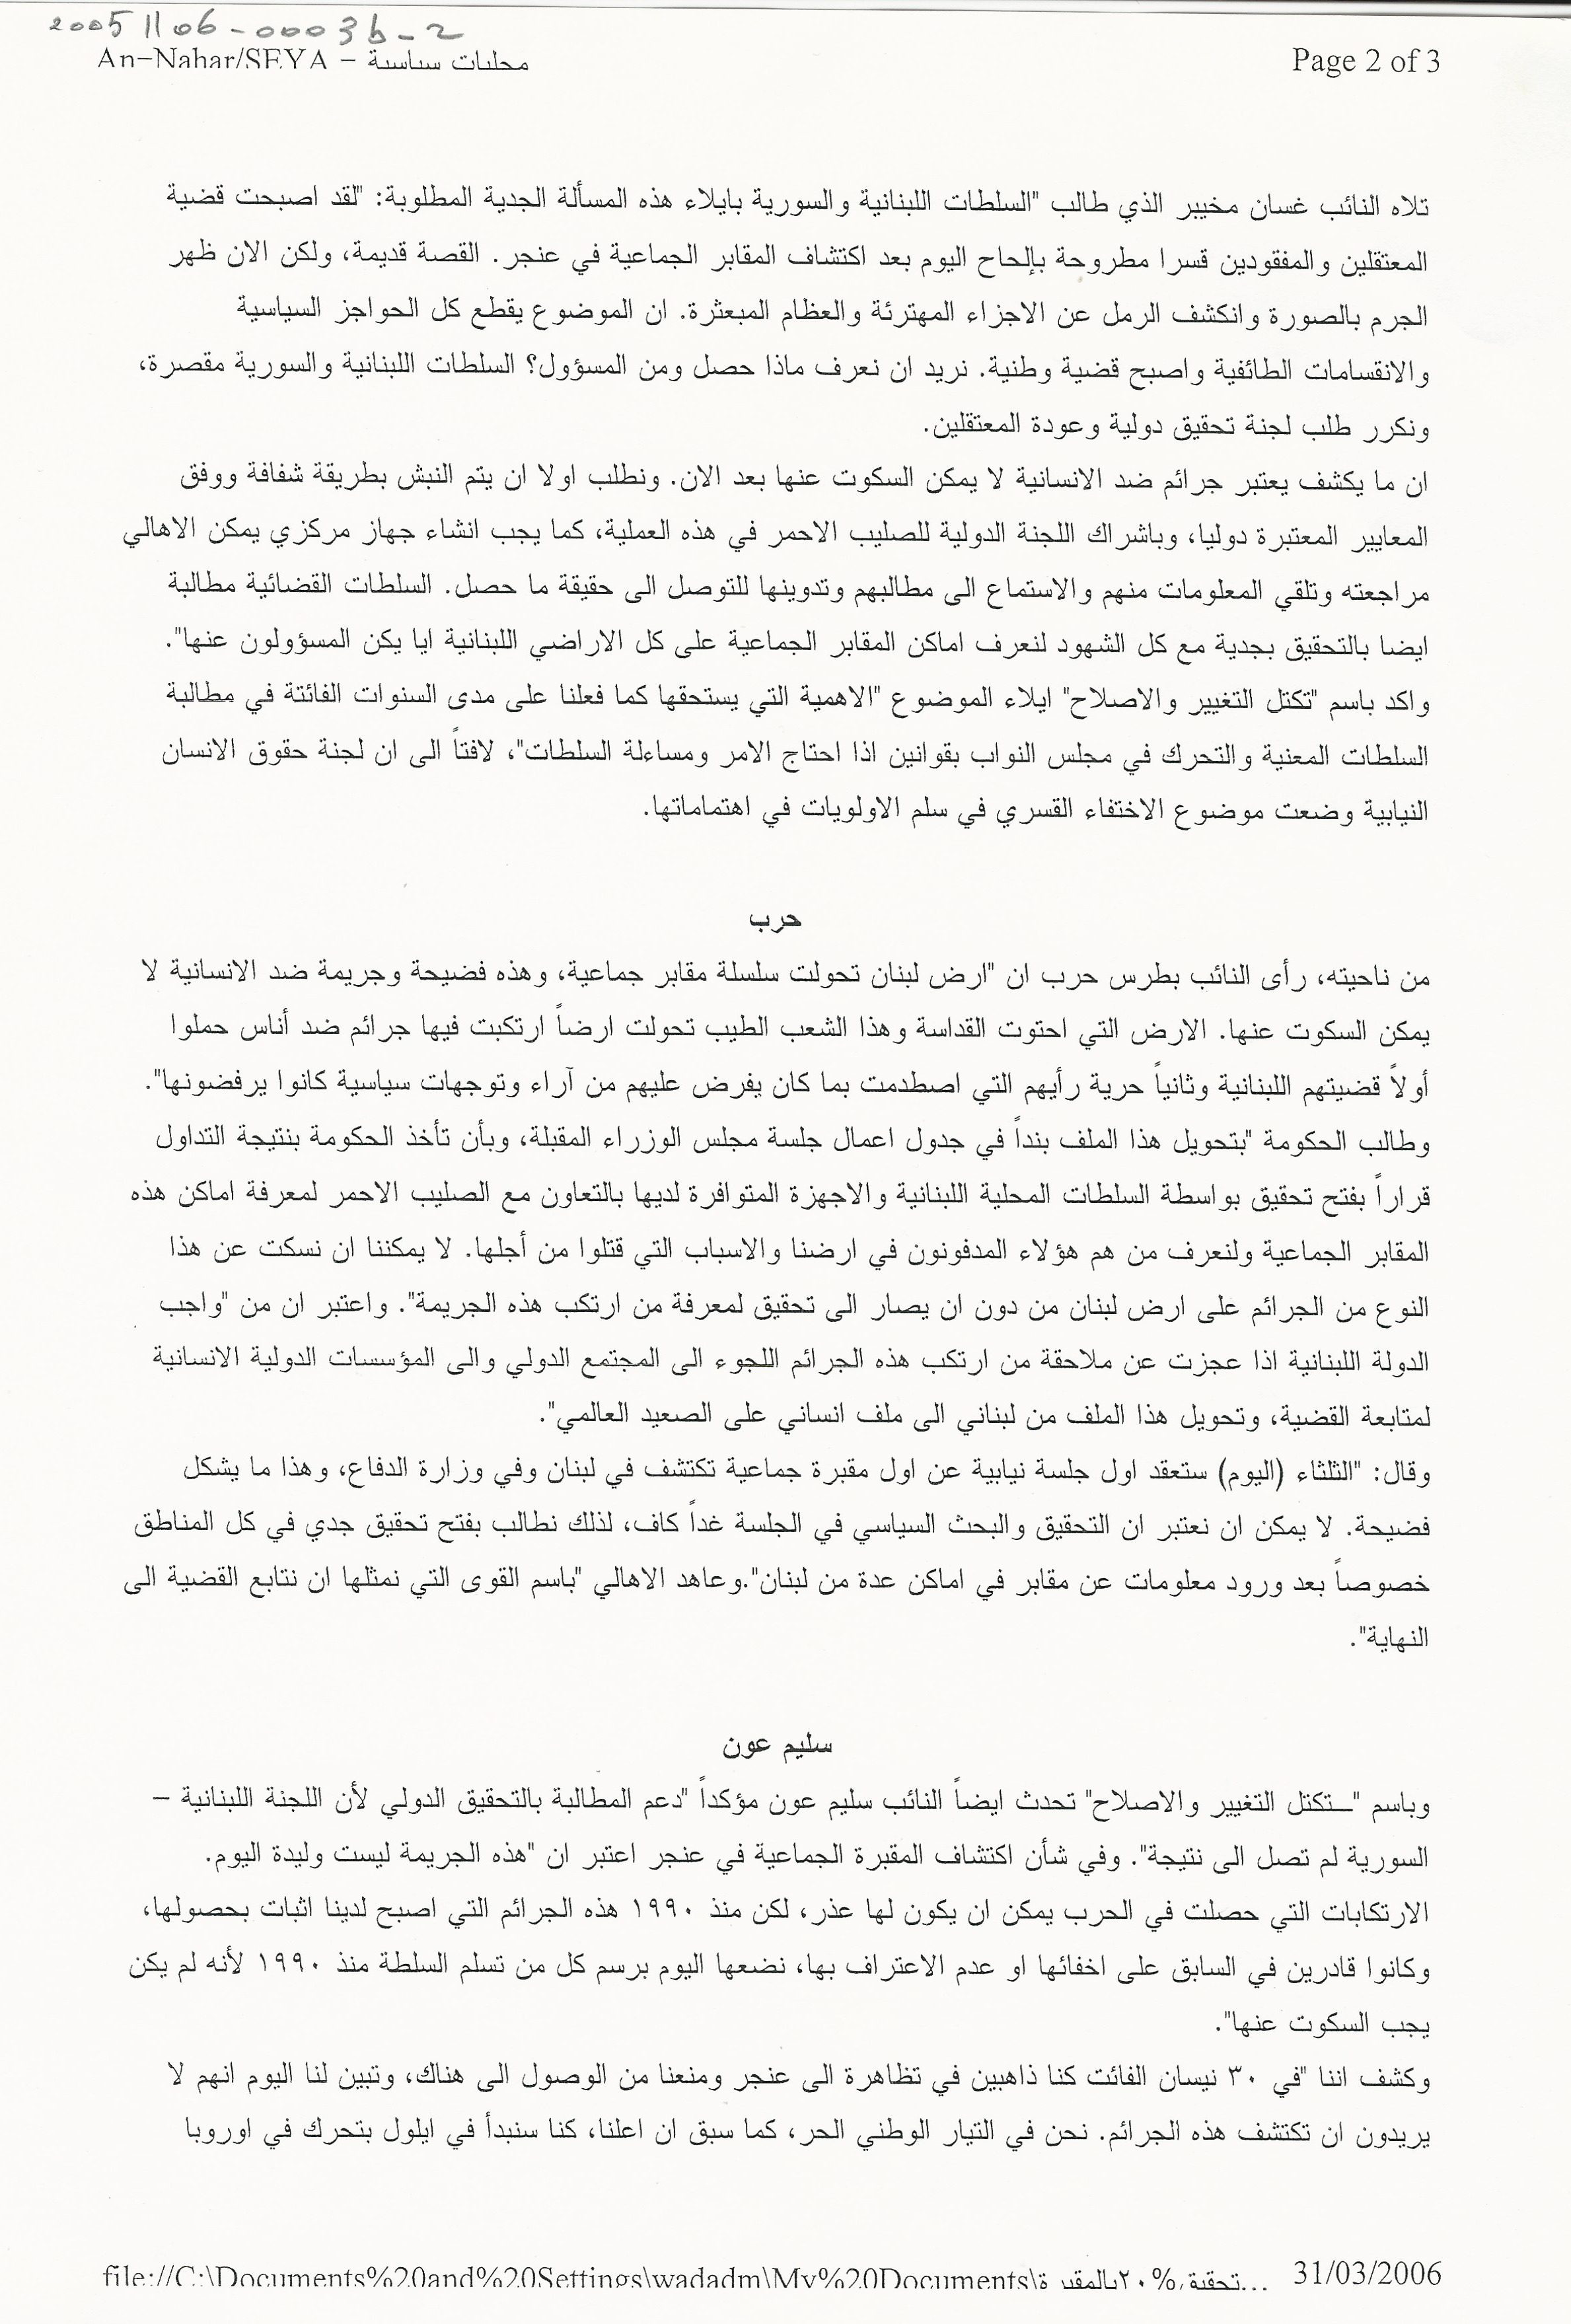 20051106-00036-2
An-Nahar/SEYA - محليات سياسية
Page 2 of 3
تلاه النائب غسان مخيبر الذي طالب "السلطات اللبنانية والسورية بايلاء هذه المسألة الجدية المطلوبة: "لقد اصبحت قضية
المعتقلين والمفقودين قسرا مطروحة بإلحاح اليوم بعد اكتشاف المقابر الجماعية في عنجر. القصة قديمة، ولكن الان ظهر
الجرم بالصورة وانكشف الرمل عن الاجزاء المهترئة والعظام المبعثرة. ان الموضوع يقطع كل الحواجز السياسية
والانقسامات الطائفية واصبح قضية وطنية. نريد ان نعرف ماذا حصل ومن المسؤول؟ السلطات اللبنانية والسورية مقصرة،
ونكرر طلب لجنة تحقيق دولية وعودة المعتقلين.
ان ما يكشف يعتبر جرائم ضد الانسانية لا يمكن السكوت عنها بعد الان. ونطلب اولا ان يتم النبش بطريقة شفافة ووفق
المعايير المعتبرة دوليا، وباشراك اللجنة الدولية للصليب الاحمر في هذه العملية، كما يجب انشاء جهاز مركزي يمكن الاهالي
مراجعته وتلقي المعلومات منهم والاستماع الى مطالبهم وتدوينها للتوصل الى حقيقة ما حصل. السلطات القضائية مطالبة
ايضا بالتحقيق بجدية مع كل الشهود لنعرف اماكن المقابر الجماعية على كل الاراضي اللبنانية ايا يكن المسؤولون عنها".
واكد باسم "تكتل التغيير والاصلاح" ايلاء الموضوع "الاهمية التي يستحقها كما فعلنا على مدى السنوات الفائتة في مطالبة
السلطات المعنية والتحرك في مجلس النواب بقوانين اذا احتاج الامر ومساءلة السلطات"، لافتاً الى ان لجنة حقوق الانسان
النيابية وضعت موضوع الاختفاء القسري في سلم الاولويات في اهتماماتها.
حرب
من ناحيته، رأى النائب بطرس حرب ان "ارض لبنان تحولت سلسلة مقابر جماعية، وهذه فضيحة وجريمة ضد الانسانية لا
يمكن السكوت عنها. الارض التي احتوت القداسة وهذا الشعب الطيب تحولت ارضاً ارتكبت فيها جرائم ضد أناس حملوا
أولاً قضيتهم اللبنانية وثانياً حرية رأيهم التي اصطدمت بما كان يفرض عليهم من آراء وتوجهات سياسية كانوا يرفضونها".
وطالب الحكومة "بتحويل هذا الملف بنداً في جدول اعمال جلسة مجلس الوزراء المقبلة، وبأن تأخذ الحكومة بنتيجة التداول
قراراً بفتح تحقيق بواسطة السلطات المحلية اللبنانية والاجهزة المتوافرة لديها بالتعاون مع الصليب الاحمر لمعرفة اماكن هذه
المقابر الجماعية ولنعرف من هم هؤلاء المدفونون في ارضنا والاسباب التي قتلوا من أجلها. لا يمكننا ان نسكت عن هذا
النوع من الجرائم على ارض لبنان من دون ان يصار الى تحقيق لمعرفة من ارتكب هذه الجريمة". واعتبر ان من "واجب
الدولة اللبنانية اذا عجزت عن ملاحقة من ارتكب هذه الجرائم اللجوء الى المجتمع الدولي والى المؤسسات الدولية الانسانية
لمتابعة القضية، وتحويل هذا الملف من لبناني الى ملف انساني على الصعيد العالمي".
وقال: "الثلثاء (اليوم) ستعقد اول جلسة نيابية عن اول مقبرة جماعية تكتشف في لبنان وفي وزارة الدفاع، وهذا ما يشكل
فضيحة. لا يمكن ان نعتبر ان التحقيق والبحث السياسي في الجلسة غداً كاف، لذلك نطالب بفتح تحقيق جدي في كل المناطق
خصوصاً بعد ورود معلومات عن مقابر في اماكن عدة من لبنان".وعاهد الاهالي "باسم القوى التي نمثلها ان نتابع القضية الى
النهاية".
سليم عون
وباسم "ــتكتل التغيير والاصلاح" تحدث ايضاً النائب سليم عون مؤكداً "دعم المطالبة بالتحقيق الدولي لأن اللجنة اللبنانية –
السورية لم تصل الى نتيجة". وفي شأن اكتشاف المقبرة الجماعية في عنجر اعتبر ان "هذه الجريمة ليست وليدة اليوم.
الارتكابات التي حصلت في الحرب يمكن ان يكون لها عذر، لكن منذ ١٩٩٠ هذه الجرائم التي اصبح لدينا اثبات بحصولها،
وكانوا قادرين في السابق على اخفائها او عدم الاعتراف بها، نضعها اليوم برسم كل من تسلم السلطة منذ ١٩٩٠ لأنه لم يكن
يجب السكوت عنها".
وكشف اننا "في ٣٠ نيسان الفائت كنا ذاهبين في تظاهرة الى عنجر ومنعنا من الوصول الى هناك، وتبين لنا اليوم انهم لا
يريدون ان تكتشف هذه الجرائم. نحن في التيار الوطني الحر، كما سبق ان اعلنا، كنا سنبدأ في ايلول بتحرك في اوروبا
file://C:\Documents%20and%20Settings\wadadm\My%20Documents\تحقيق%٢٠بالمقبرة...
31/03/2006